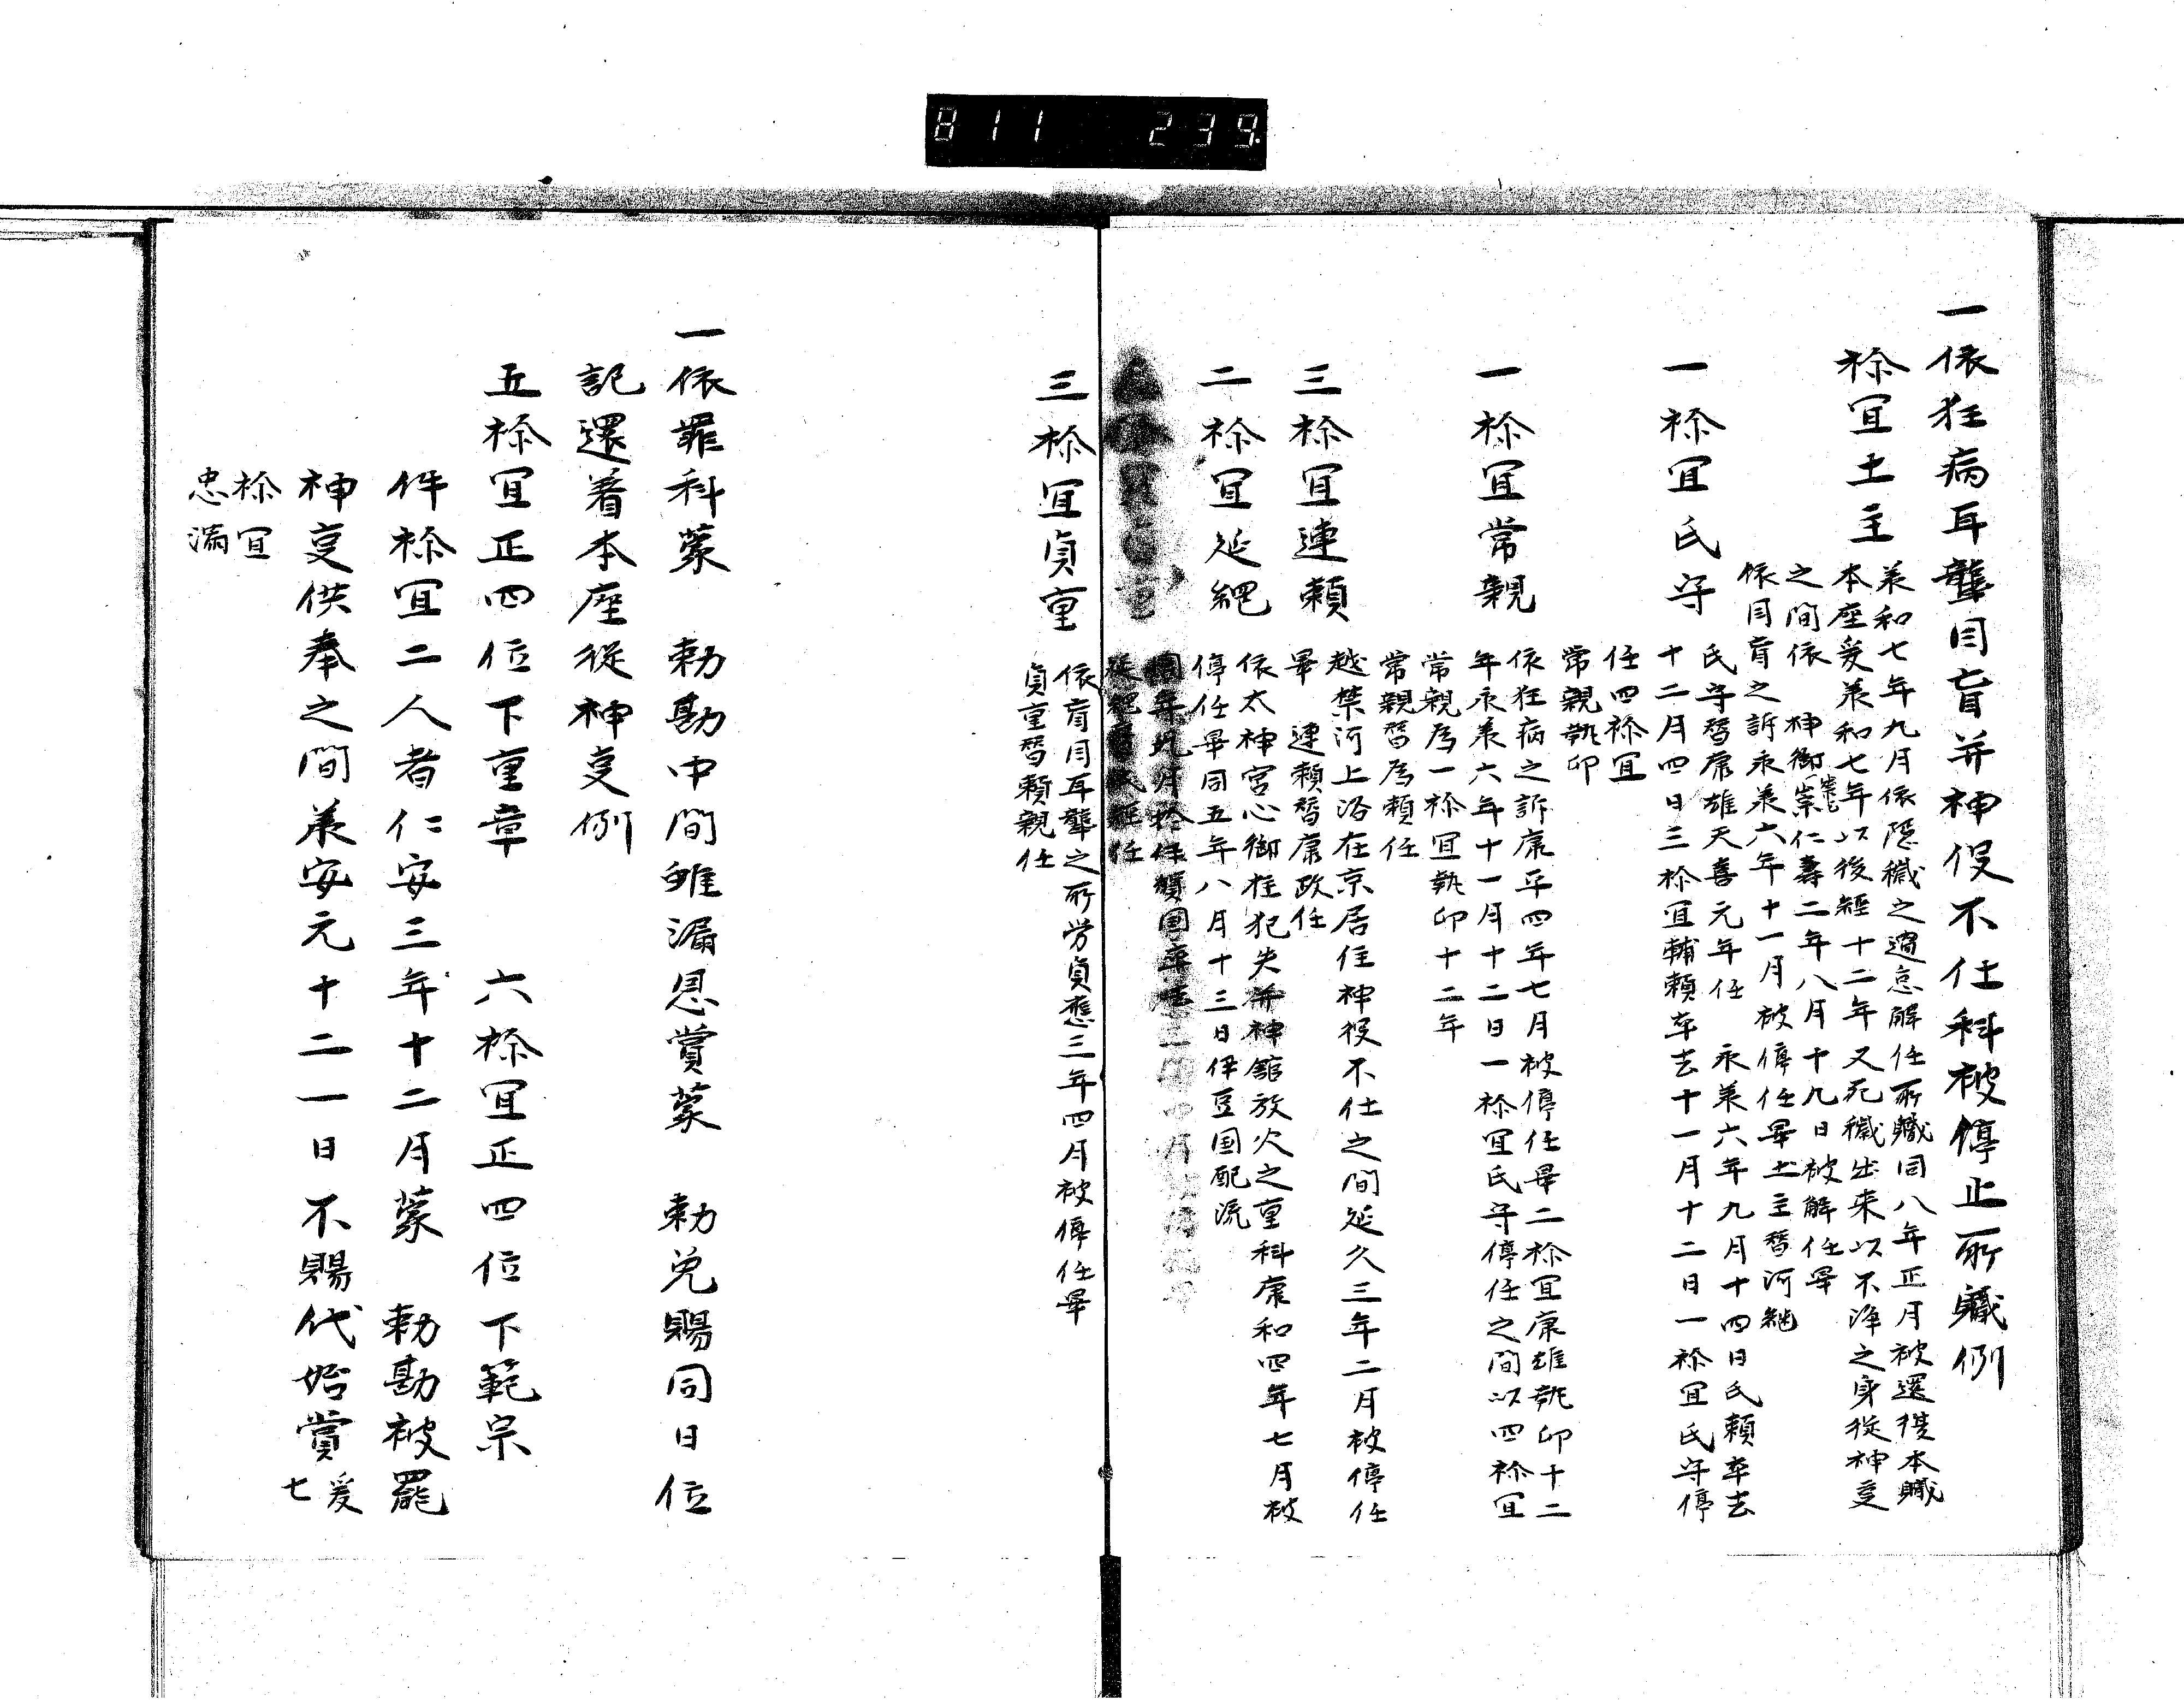 811 239
一依狂病耳聾目盲并神役不仕科被停止所職例
祢宜土主
承和七年九月依隠穢之過怠解任所職同八年正月被還復本職
本座爰承和七年以後経十二年又死穢出来以不浄之身従神事
之間依 神御祟仁壽二年八月十九日被解任畢
依目盲之訴永承六年十一月被停任畢土主替河継
一祢宜氏守
氏守替康雄天喜元年任 永承六年九月十四日氏頼卒去
十二月四日三祢宜輔頼卒去十一月十二日一祢宜氏守停
任四祢宜
常親執印
一祢宜常親
依狂病之訴康平四年七月被停任畢二祢宜康雄執印十二
年永承六年十一月十二日一祢宜氏守停任之間以四祢宜
常親為一祢宜執印十二年
常親替為頼任
三祢宜連頼
越禁河上洛在京居住神役不仕之間延久三年二月被停任
畢 連頼替康政任
二祢宜延縄
依太神宮心御柱犯失并神舘放火之重科康和四年七月被
停任畢同五年八月十三日伊豆国配流
三祢宜貞重
依盲目耳聾之所労貞應三年四月被停任畢
貞重替頼親任
一依罪科蒙 勅勘中間雖漏恩賞蒙 勅免賜同日位
記還着本座従神事例
五祢宜正四位下重章 六祢宜正四位下範宗
件祢宜二人者仁安三年十二月蒙 勅勘被罷
神事供奉之間承安元十二一日不賜代始賞爰七
祢宜
忠満